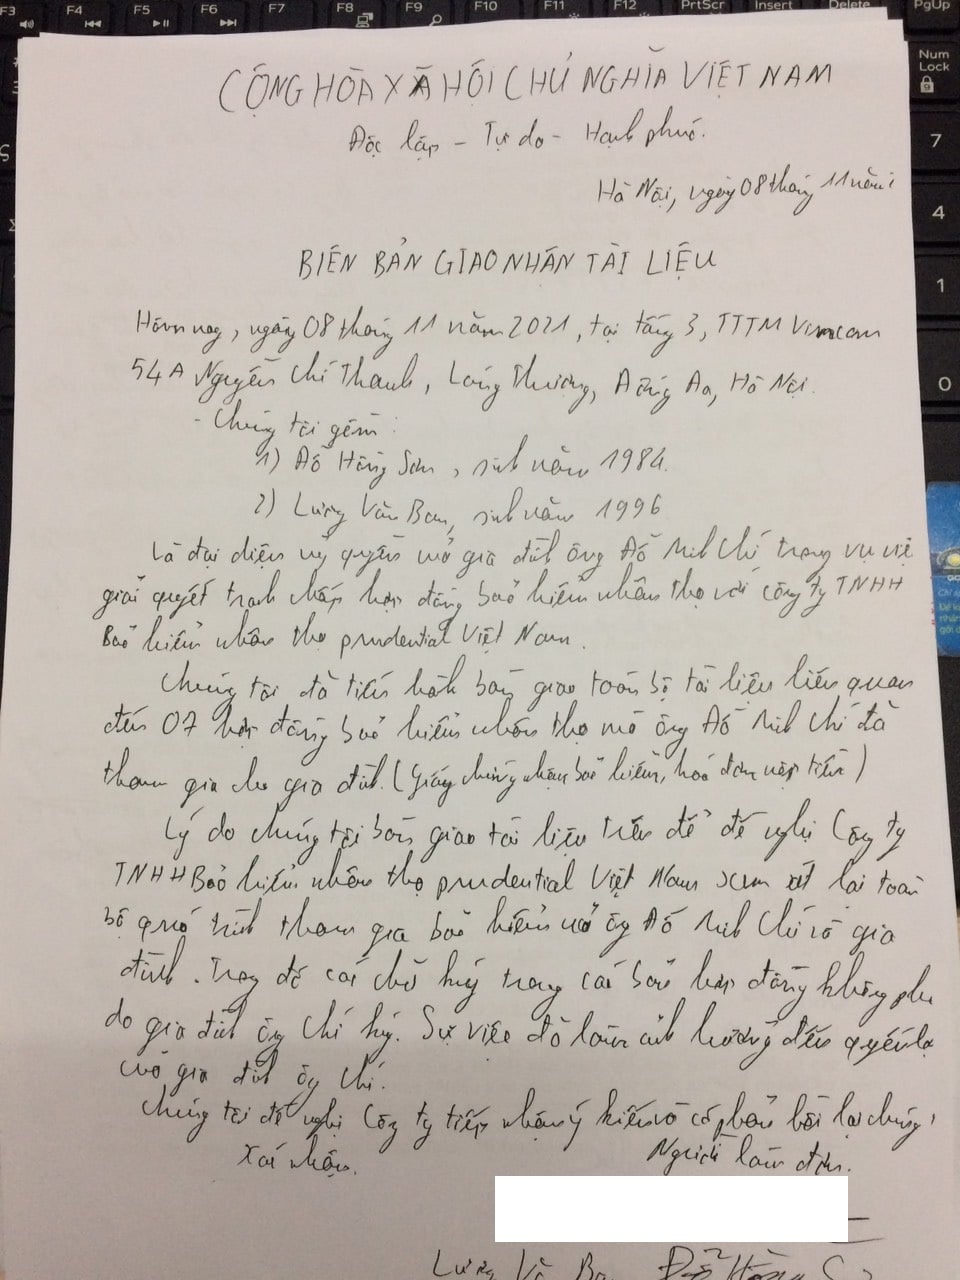 F3 F4 F5 F6 F7 F8 F9 F10 F11 F12 PrtScr Insert Delete PgUp
Num Lock
7
4
1
0
CỘNG HÒA XÃ HỘI CHỦ NGHĨA VIỆT NAM
Độc lập - Tự do - Hạnh phúc.
Hà Nội, ngày 08 tháng 11 năm
BIÊN BẢN GIAO NHẬN TÀI LIỆU
Hôm nay, ngày 08 tháng 11 năm 2021, tại tầng 3, TTTM Vincom
54A Nguyễn Chí Thanh, Láng Thượng, Đống Đa, Hà Nội.
- Chúng tôi gồm:
1) Đỗ Hồng Sơn, sinh năm 1984.
2) Lương Văn Ban, sinh năm 1996
Là đại diện uỷ quyền của gia đình ông Đỗ Minh Chí trong vụ việc
giải quyết tranh chấp hợp đồng bảo hiểm nhân thọ với công ty TNHH
Bảo hiểm nhân thọ prudential Việt Nam.
Chúng tôi đã tiến hành bàn giao toàn bộ tài liệu liên quan
đến 07 hợp đồng bảo hiểm nhân thọ mà ông Đỗ Minh Chí đã
tham gia cho gia đình. (Giấy chứng nhận bảo hiểm, hoá đơn nộp tiền)
Lý do chúng tôi bàn giao tài liệu trên để đề nghị Công ty
TNHH Bảo hiểm nhân thọ prudential Việt Nam xem xét lại toàn
bộ quá trình tham gia bảo hiểm của ông Đỗ Minh Chí và gia
đình. Trong đó các chữ ký trong các bản hợp đồng không phải
do gia đình ông Chí ký. Sự việc đã làm ảnh hưởng đến quyền lợi
của gia đình ông Chí.
Chúng tôi đề nghị Công ty tiếp nhận ý kiến và có phản hồi lại chúng
Xác nhận. Người làm đơn.
Lương Văn Ban Đỗ Hồng